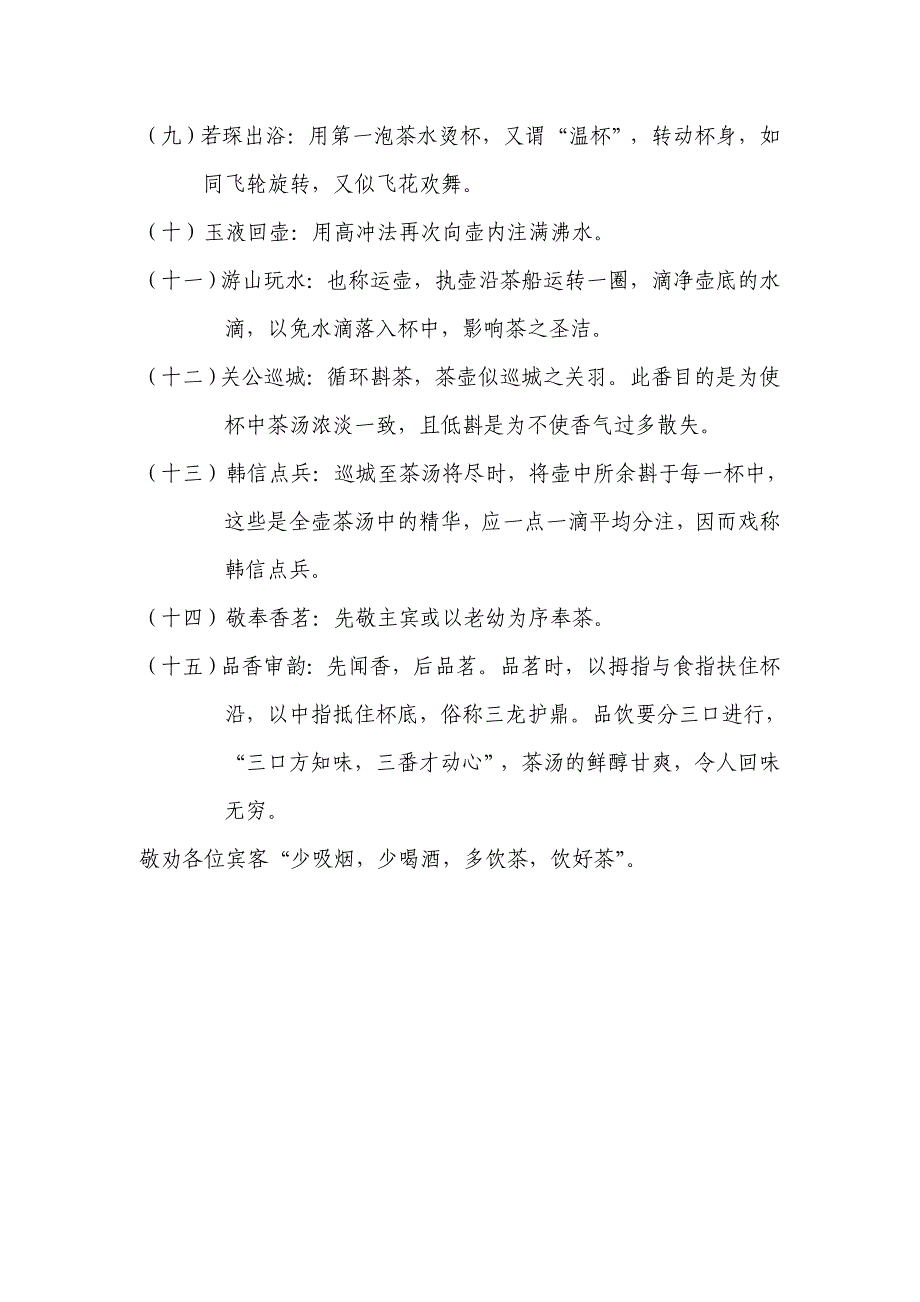 （九）若琛出浴：用第一泡茶水烫杯，又谓“温杯”，转动杯身，如
同飞轮旋转，又似飞花欢舞。
（十）玉液回壶：用高冲法再次向壶内注满沸水。
（十一）游山玩水：也称运壶，执壶沿茶船运转一圈，滴净壶底的水
滴，以免水滴落入杯中，影响茶之圣洁。
（十二）关公巡城：循环斟茶，茶壶似巡城之关羽。此番目的是为使
杯中茶汤浓淡一致，且低斟是为不使香气过多散失。
（十三）韩信点兵：巡城至茶汤将尽时，将壶中所余斟于每一杯中，
这些是全壶茶汤中的精华，应一点一滴平均分注，因而戏称
韩信点兵。
（十四）敬奉香茗：先敬主宾或以老幼为序奉茶。
（十五）品香审韵：先闻香，后品茗。品茗时，以拇指与食指扶住杯
沿，以中指抵住杯底，俗称三龙护鼎。品饮要分三口进行，
“三口方知味，三番才动心”，茶汤的鲜醇甘爽，令人回味
无穷。
敬劝各位宾客“少吸烟，少喝酒，多饮茶，饮好茶”。